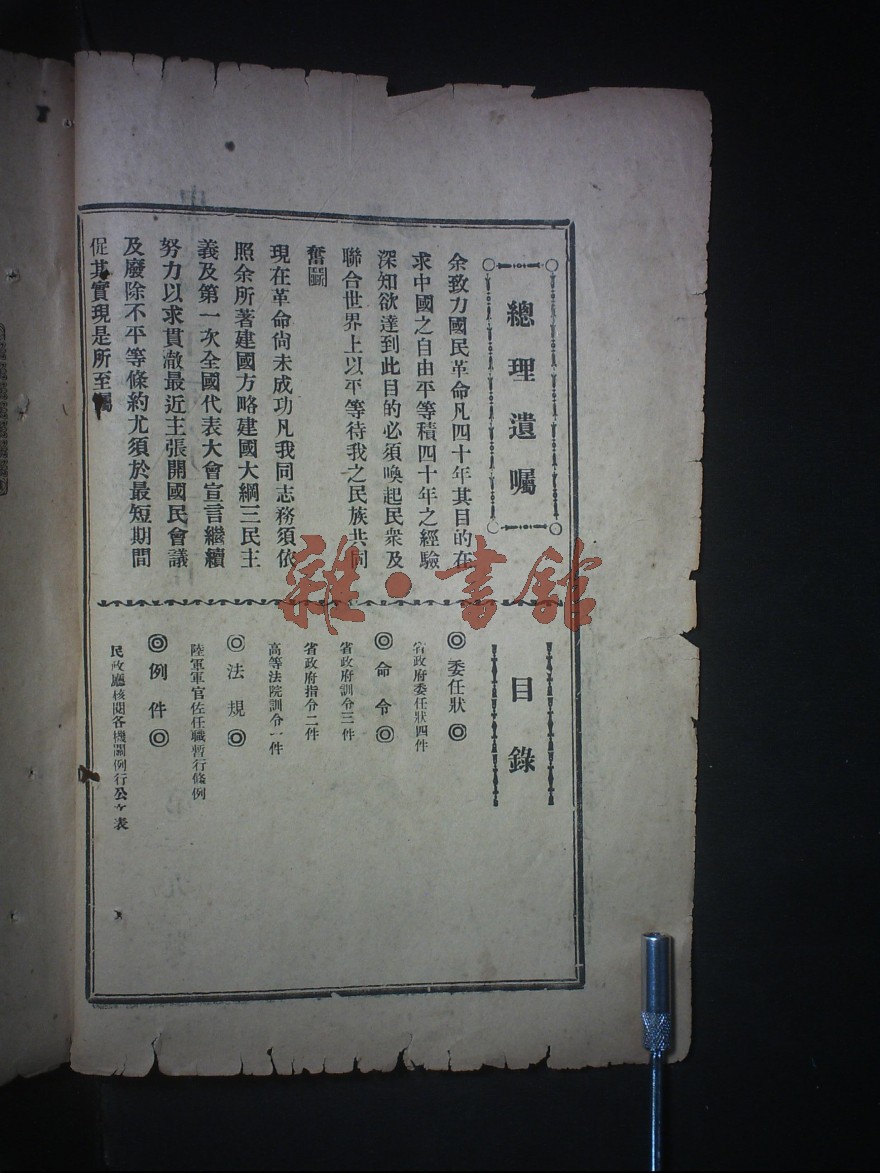 總理遺囑
余致力國民革命凡四十年其目的在
求中國之自由平等積四十年之經驗
深知欲達到此目的必須喚起民衆及
聯合世界上以平等待我之民族共同
奮鬭
現在革命尙未成功凡我同志務須依
照余所著建國方略建國大綱三民主
義及第一次全國代表大會宣言繼續
努力以求貫澈最近主張開國民會議
及廢除不平等條約尤須於最短期間
促其實現是所至囑
目錄
◎委任狀◎
省政府委任狀四件
◎命令◎
省政府訓令三件
省政府指令二件
高等法院訓令一件
◎法規◎
陸軍軍官佐任職暫行條例
◎例件◎
民政廳核閱各機關例行公文表
雜·書館